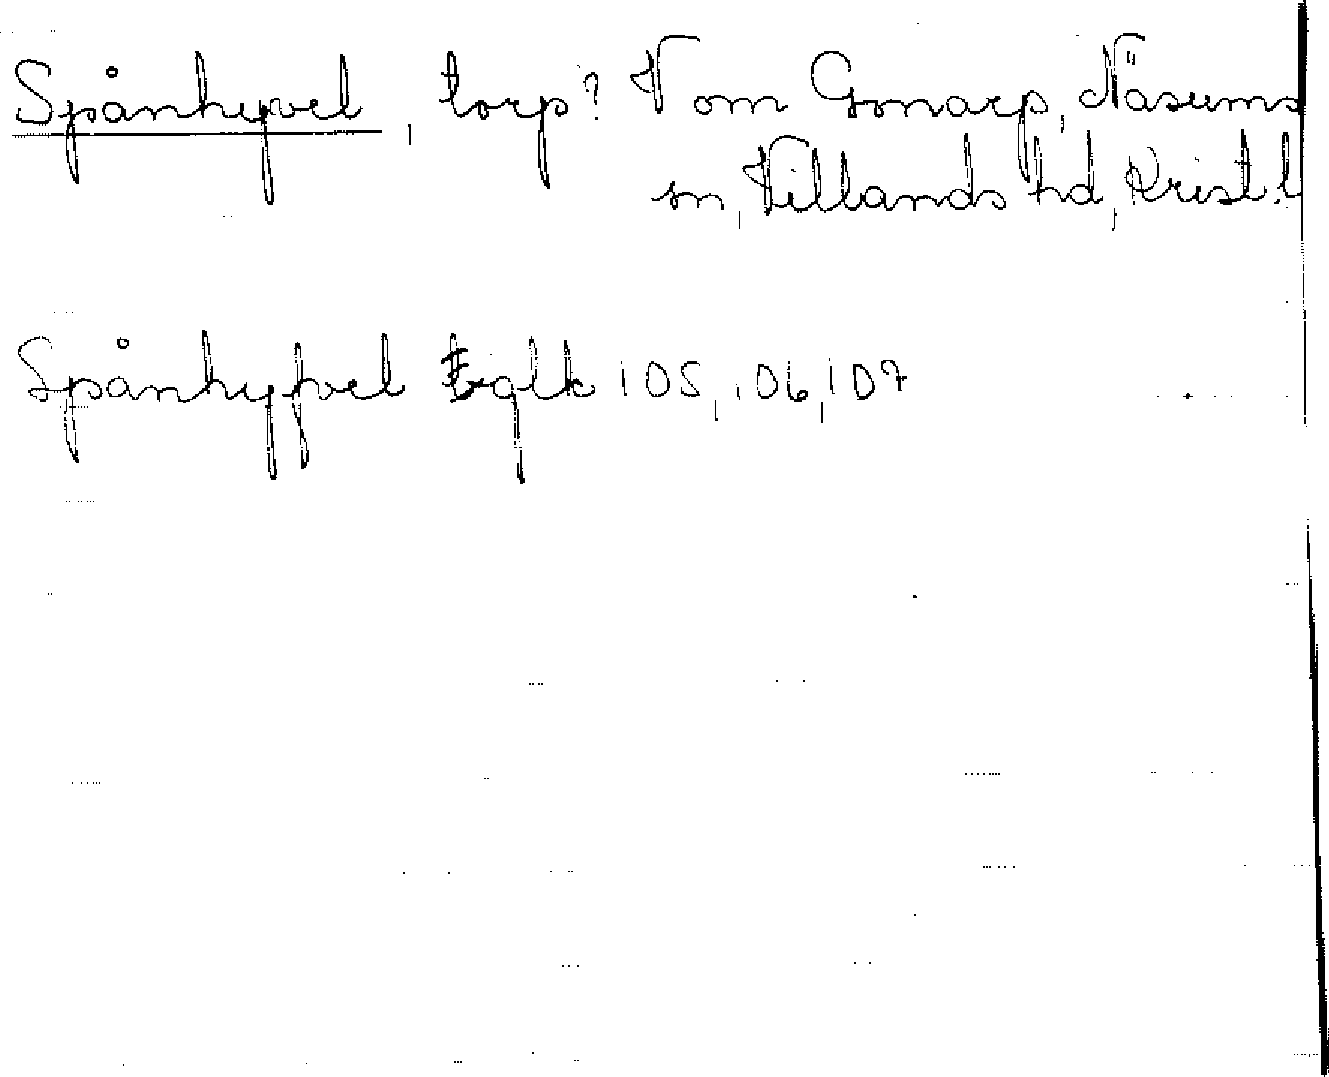 Spånhyvel, torp? V om Gonarp, Näsums
sn, Villands hd, Krist. l
Spånhyfvel Eglk 105, 106, 107